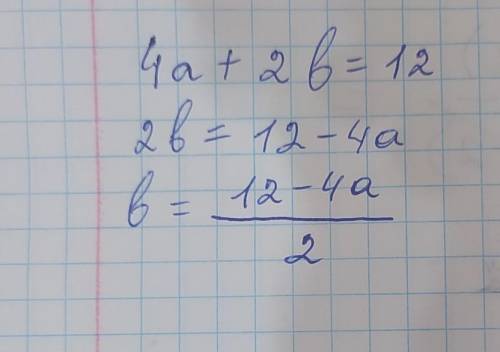 4a + 2b = 12
2b = 12 - 4a
b = (12 - 4a) / 2